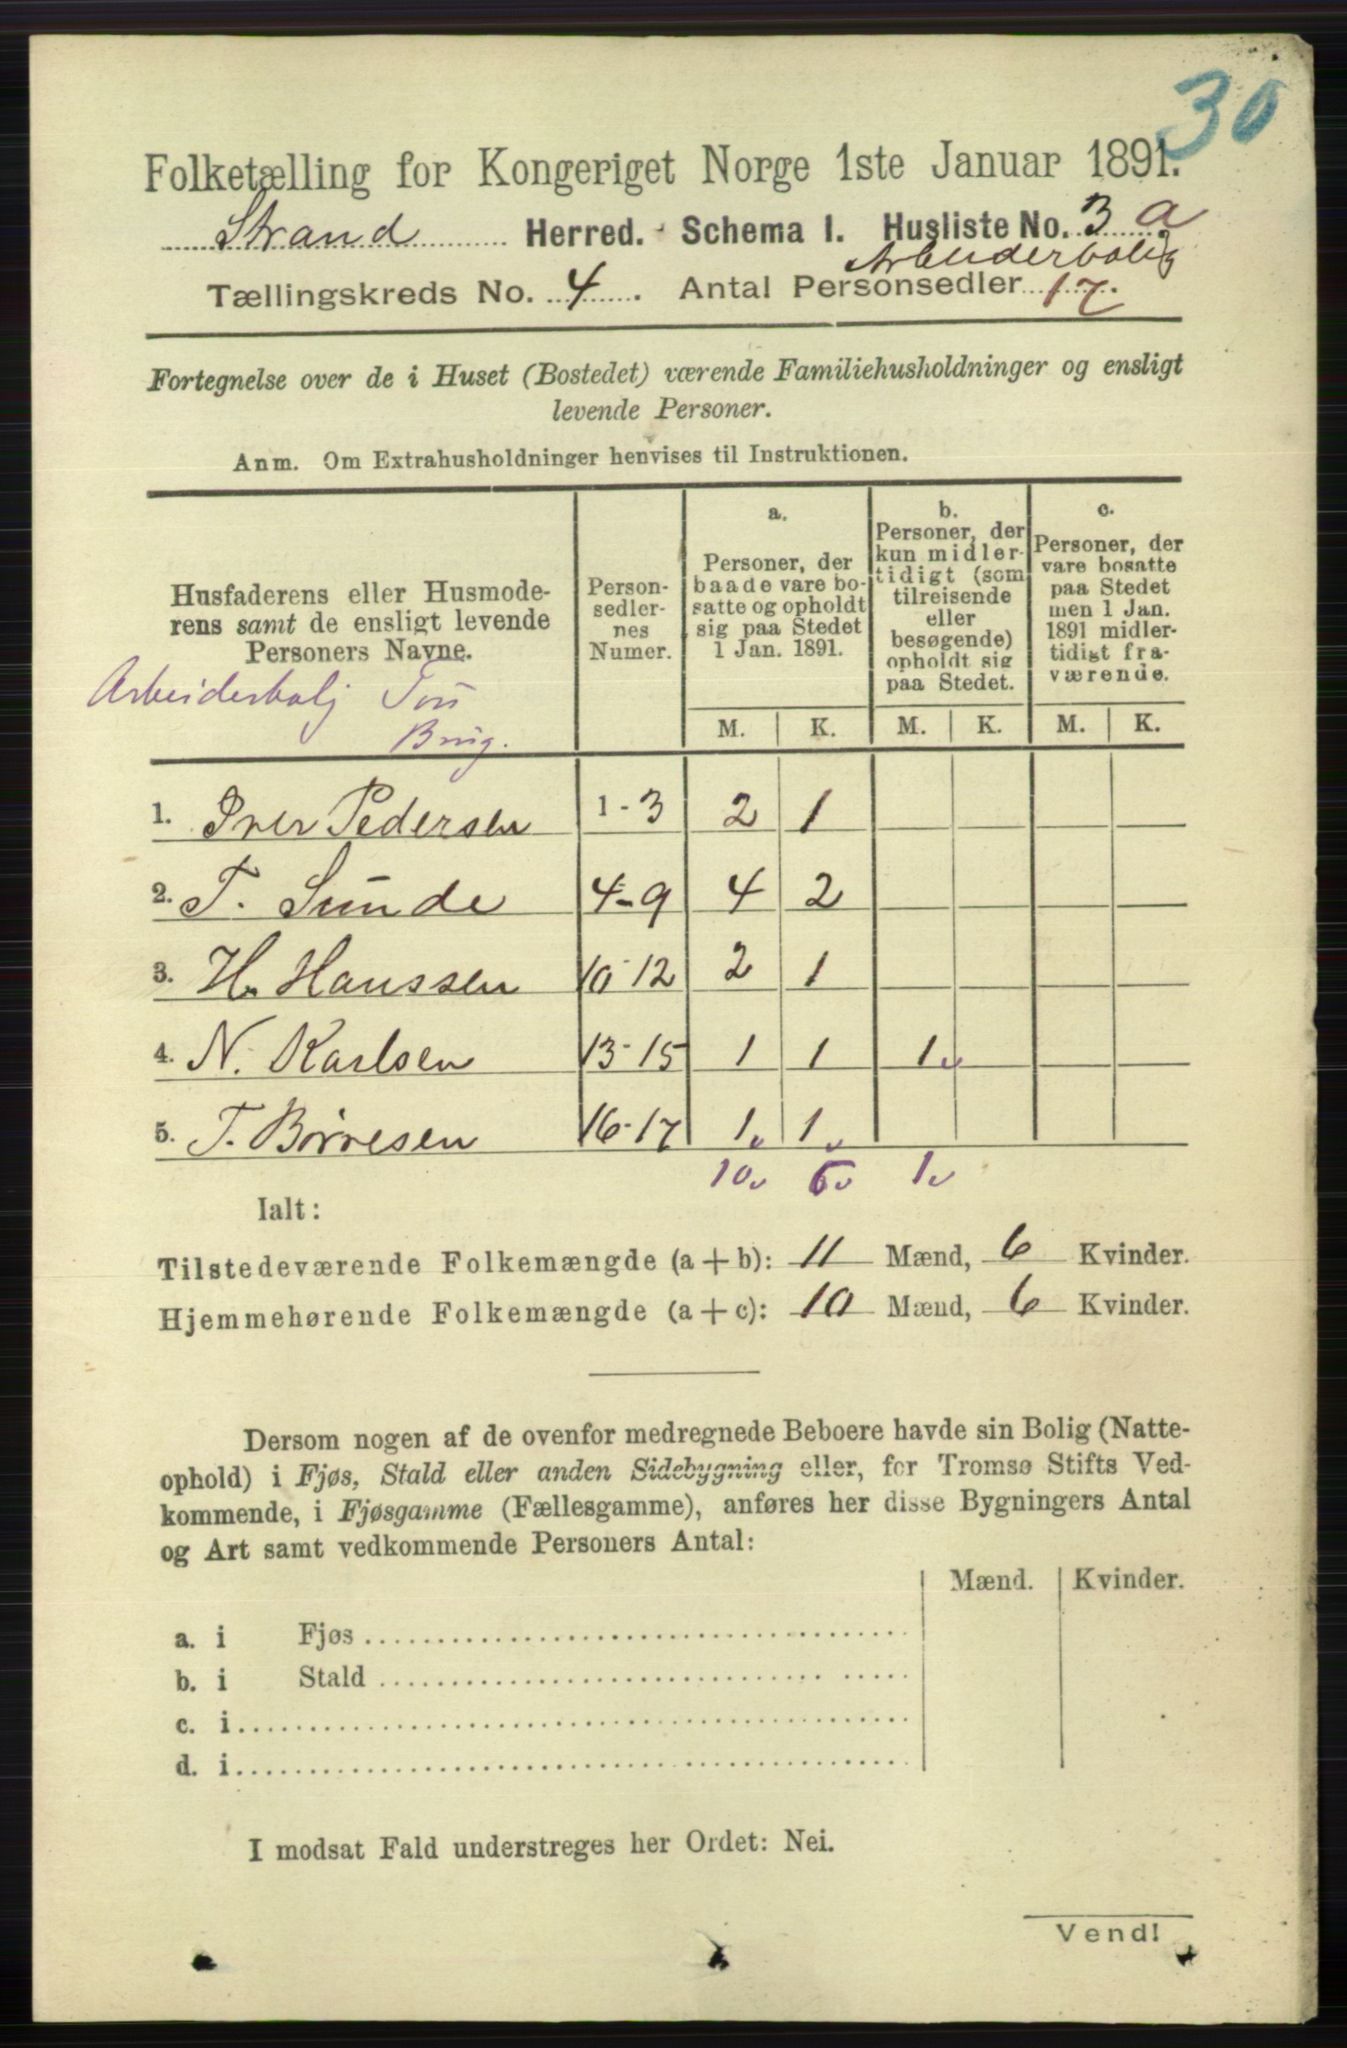 30
Folketælling for Kongeriget Norge 1ste Januar 1891.
Strand Herred. Schema I. Husliste No. 3 a
Arbeiderbolig
Tællingskreds No. 4. Antal Personsedler 17.
Fortegnelse over de i Huset (Bostedet) værende Familiehusholdninger og ensligt
levende Personer.
Anm. Om Extrahusholdninger henvises til Instruktionen.
Husfaderens eller Husmode-
rens samt de ensligt levende
Personers Navne.
Person-
sedler-
nes
Numer.
a.
Personer, der
baade vare bo-
satte og opholdt
sig paa Stedet
1 Jan. 1891.
b.
Personer, der
kun midler-
tidigt (som
tilreisende
eller
besøgende)
opholdt sig
paa Stedet.
c.
Personer, der
vare bosatte
paa Stedet
men 1 Jan.
1891 midler-
tidigt fra-
værende.
Arbeiderbolj Tou
Brug.
M. K. M. K. M. K.
1. Iver Pedersen 1-3 2 1
2. T. Sunde 4-9 4 2
3. H. Hanssen 10-12 2 1
4. N. Karlsen 13-15 1 1 1
5. T. Børresen 16-17 1 1
10 6 1
Ialt:
Tilstedeværende Folkemængde (a+b): 11 Mænd, 6 Kvinder.
Hjemmehørende Folkemængde (a+c): 10 Mænd, 6 Kvinder.
Dersom nogen af de ovenfor medregnede Beboere havde sin Bolig (Natte-
ophold) i Fjøs, Stald eller anden Sidebygning eller, for Tromsø Stifts Ved-
kommende, i Fjøsgamme (Fællesgamme), anføres her disse Bygningers Antal
og Art samt vedkommende Personers Antal:
Mænd. Kvinder.
a. i Fjøs
b. i Stald
c. i
d. i
I modsat Fald understreges her Ordet: Nei.
Vend!